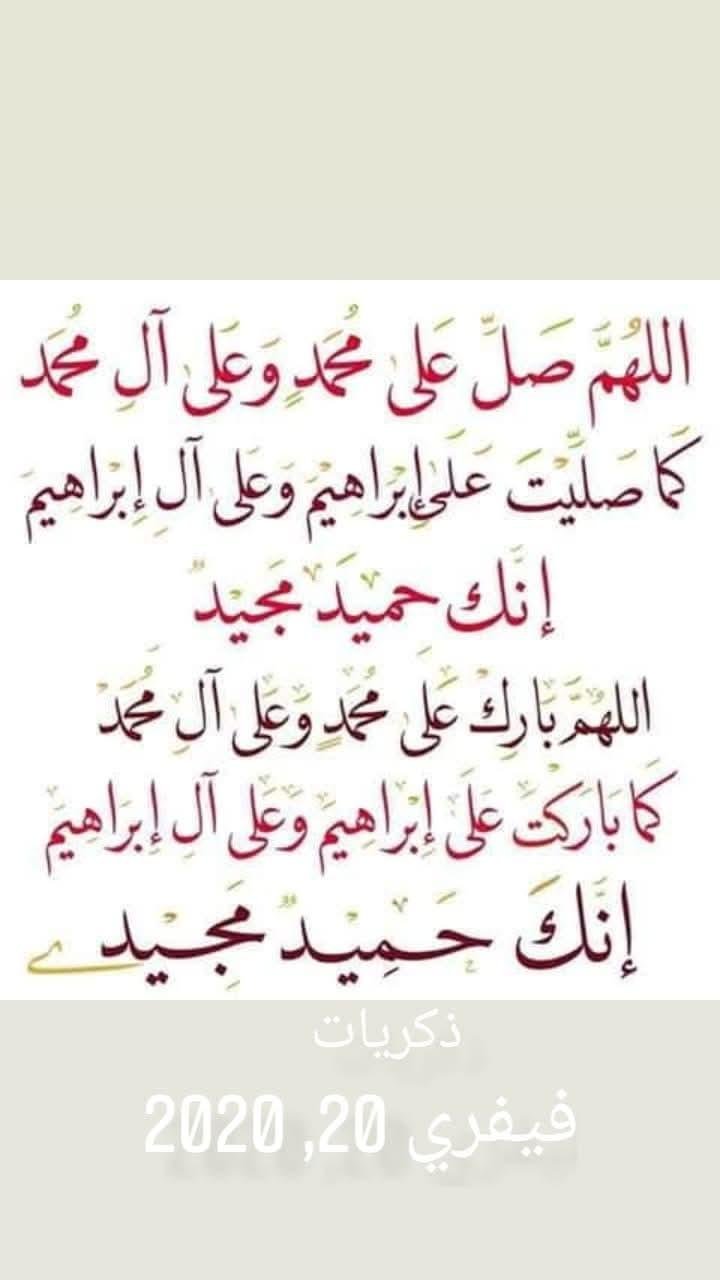 اللهُمَّ صَلِّ عَلىٰ مُحَمَّدٍ وَعَلىٰ آلِ مُحَمَّد
كَمَا صَلَّيْتَ عَلىٰ إِبْرَاهِيْمَ وَعَلىٰ آلِ إِبْرَاهِيمَ
إنَّك حَمْيدٌ مَجْيدٌ
اللهُمَّ بَارِكْ عَلىٰ مُحَمَّدٍ وَعَلىٰ آلِ مُحَمَّدْ
كَمَا بَارَكْتَ عَلىٰ إِبْرَاهِيمَ وَعَلىٰ آلِ إِبْرَاهِيمَ
إنَّكَ حَمِيْدٌ مَجِيْد
ذكريات
فيفري 20, 2020